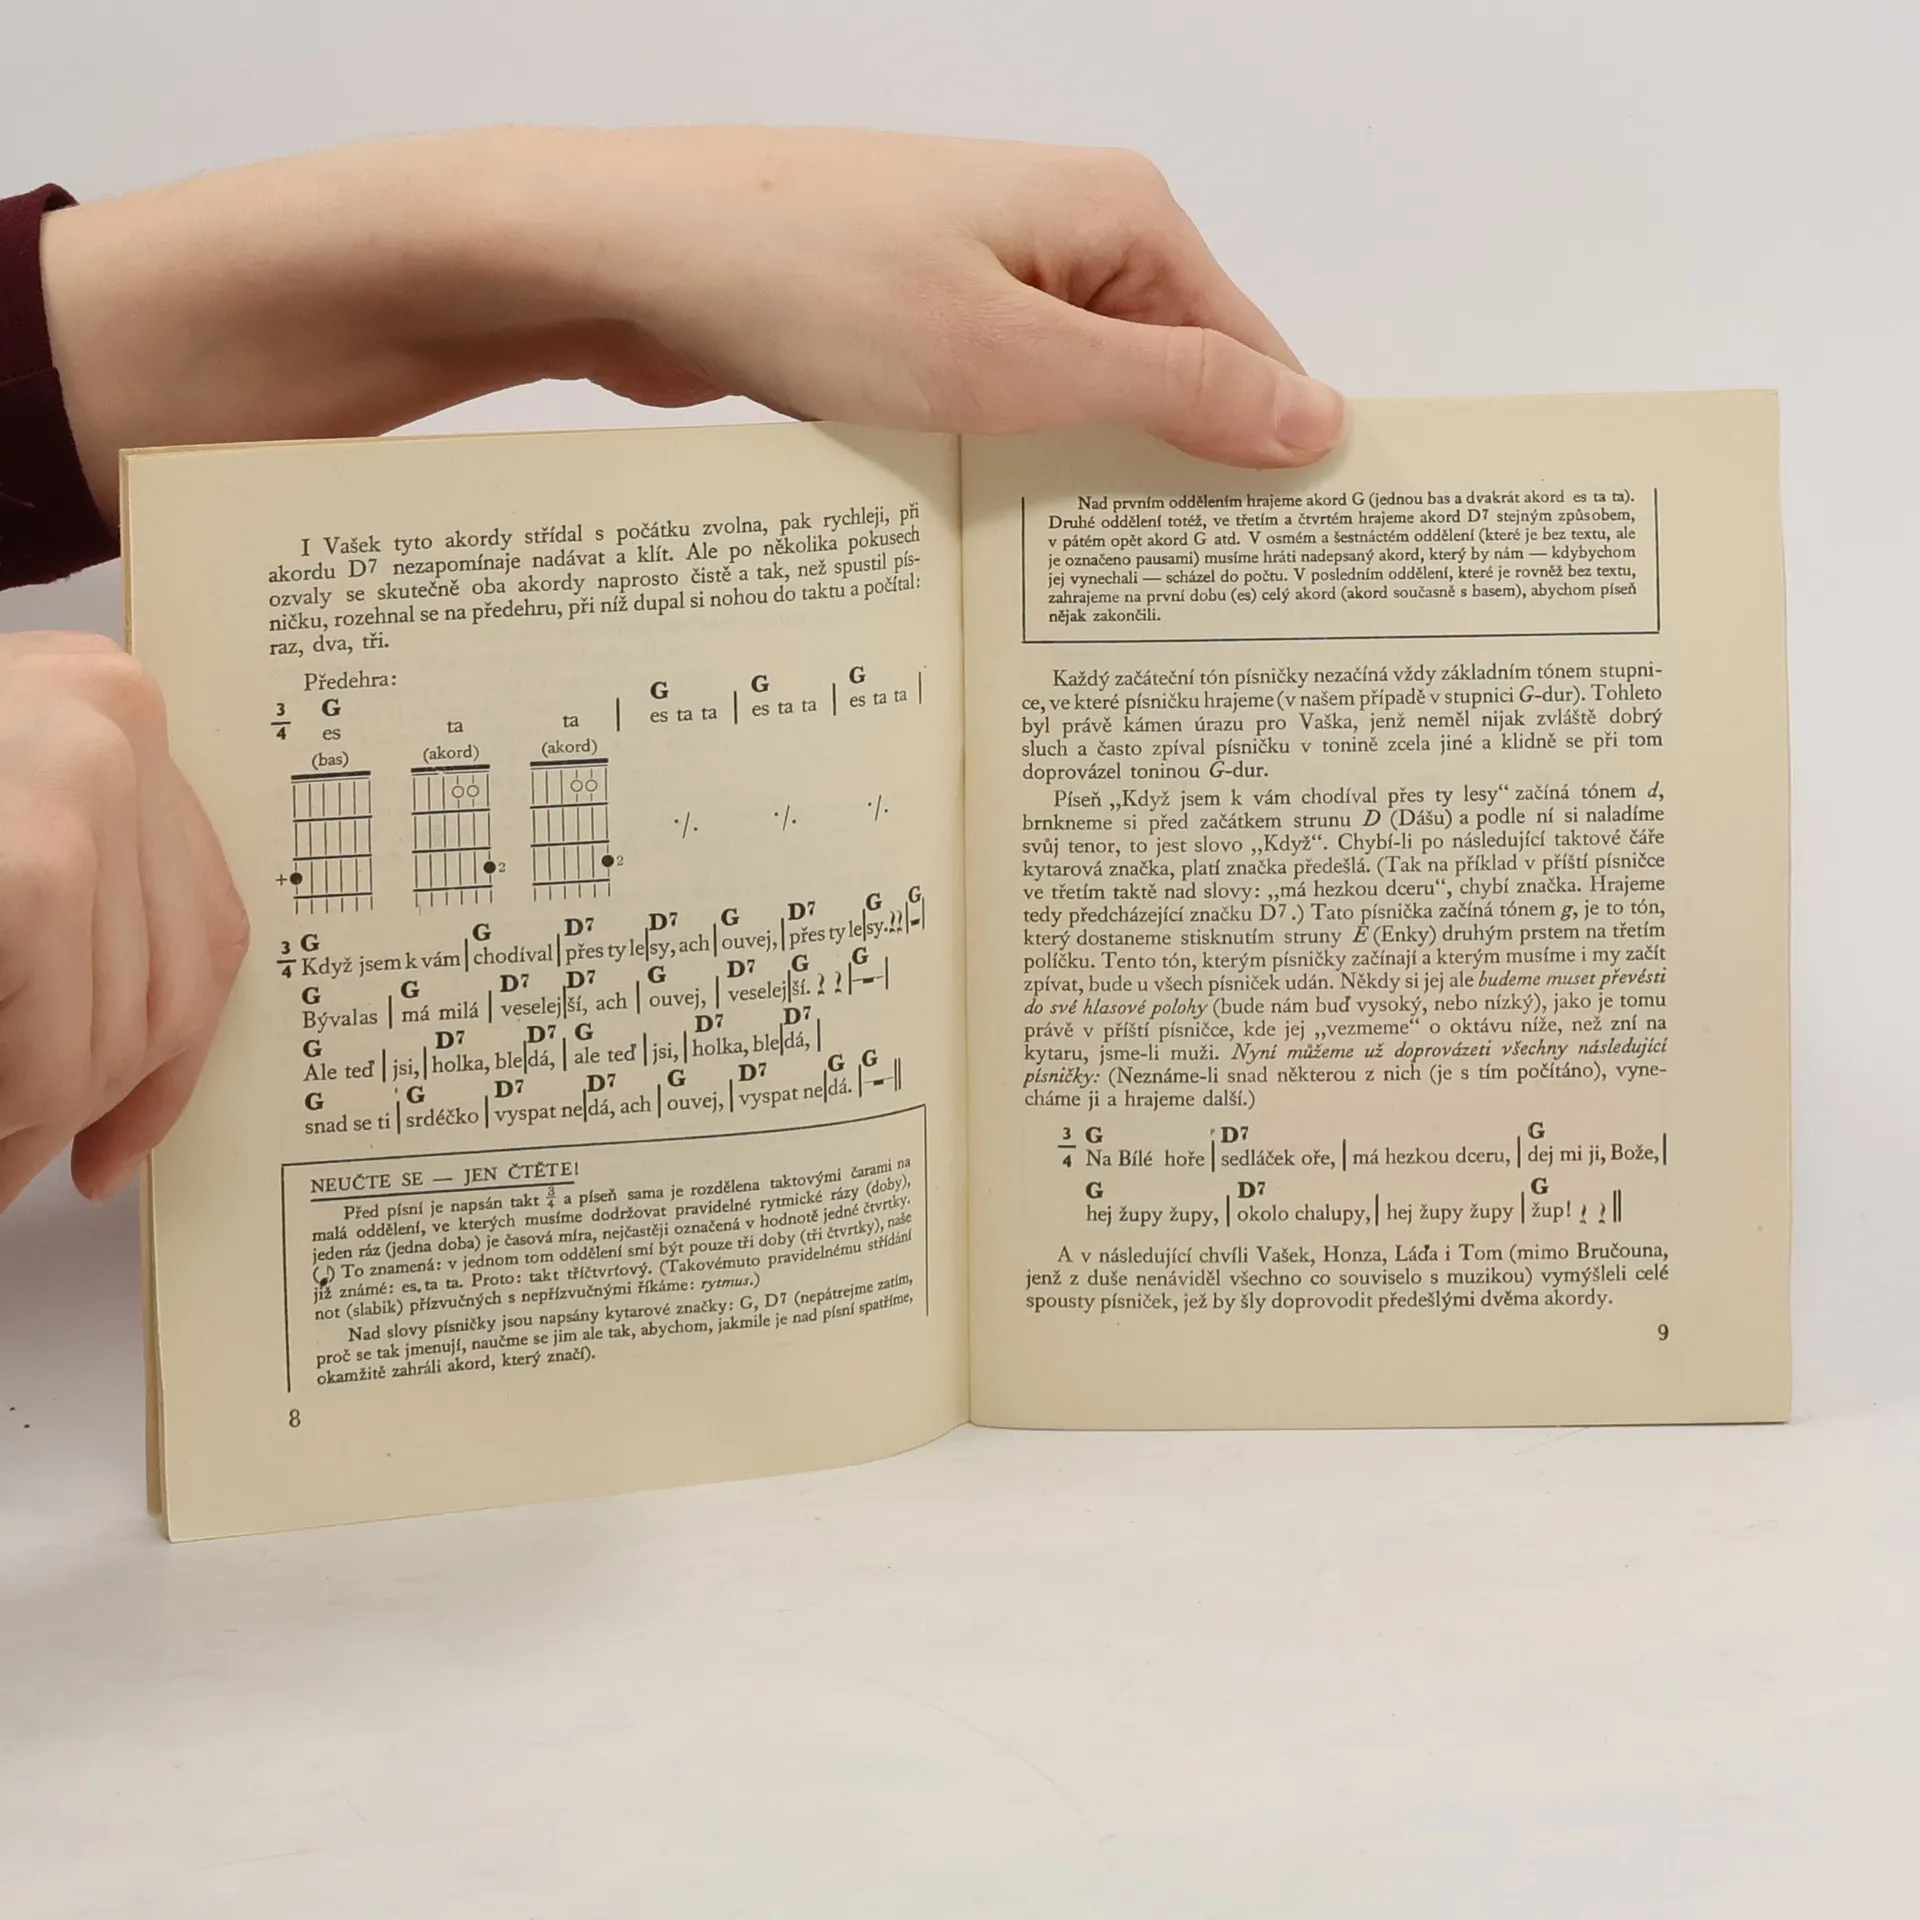 I Vašek tyto akordy střídal s počátku zvolna, pak rychleji, při
akordu D7 nezapomínaje nadávat a klít. Ale po několika pokusech
ozvaly se skutečně oba akordy naprosto čistě a tak, než spustil pís-
ničku, rozehnal se na předehru, při níž dupal si nohou do taktu a počítal:
raz, dva, tři.
Předehra:
3/4 G G G G
es ta ta | es ta ta | es ta ta | es ta ta |
(bas) (akord) (akord)
+ 2 2
·/. ·/. ·/.
G G D7 D7 G D7 G G
3/4 Když jsem k vám | chodíval | přes ty le|sy, ach | ouvej, | přes ty le|sy. | - |
G G D7 D7 G D7 G G
Bývalas | má milá | veselej|ší, ach | ouvej, | veselej|ší. | - |
G D7 D7 G D7 D7
Ale teď | jsi, | holka, ble|dá, | ale teď | jsi, | holka, ble|dá, |
G G D7 D7 G D7 G G
snad se ti | srdéčko | vyspat ne|dá, ach | ouvej, | vyspat ne|dá. | - ||
NEUČTE SE — JEN ČTĚTE!
Před písní je napsán takt 3/4 a píseň sama je rozdělena taktovými čarami na
malá oddělení, ve kterých musíme dodržovat pravidelné rytmické rázy (doby),
jeden ráz (jedna doba) je časová míra, nejčastěji označená v hodnotě jedné čtvrtky.
(♩) To znamená: v jednom tom oddělení smí být pouze tři doby (tři čtvrtky), naše
již známé: es, ta ta. Proto: takt tříčtvrťový. (Takovémuto pravidelnému střídání
not (slabik) přízvučných s nepřízvučnými říkáme: rytmus.)
Nad slovy písničky jsou napsány kytarové značky: G, D7 (nepátrejme zatím,
proč se tak jmenují, naučme se jim ale tak, abychom, jakmile je nad písní spatříme,
okamžitě zahráli akord, který značí).
8
Nad prvním oddělením hrajeme akord G (jednou bas a dvakrát akord es ta ta).
Druhé oddělení totéž, ve třetím a čtvrtém hrajeme akord D7 stejným způsobem,
v pátém opět akord G atd. V osmém a šestnáctém oddělení (které je bez textu, ale
je označeno pausami) musíme hráti nadepsaný akord, který by nám — kdybychom
jej vynechali — scházel do počtu. V posledním oddělení, které je rovněž bez textu,
zahrajeme na první dobu (es) celý akord (akord současně s basem), abychom píseň
nějak zakončili.
Každý začáteční tón písničky nezačíná vždy základním tónem stupni-
ce, ve které písničku hrajeme (v našem případě v stupnici G-dur). Tohleto
byl právě kámen úrazu pro Vaška, jenž neměl nijak zvláště dobrý
sluch a často zpíval písničku v tonině zcela jiné a klidně se při tom
doprovázel toninou G-dur.
Píseň „Když jsem k vám chodíval přes ty lesy“ začíná tónem d,
brnkneme si před začátkem strunu D (Dášu) a podle ní si naladíme
svůj tenor, to jest slovo „Když“. Chybí-li po následující taktové čáře
kytarová značka, platí značka předešlá. (Tak na příklad v příští písničce
ve třetím taktě nad slovy: „má hezkou dceru“, chybí značka. Hrajeme
tedy předcházející značku D7.) Tato písnička začíná tónem g, je to tón,
který dostaneme stisknutím struny E (Enky) druhým prstem na třetím
políčku. Tento tón, kterým písničky začínají a kterým musíme i my začít
zpívat, bude u všech písniček udán. Někdy si jej ale budeme muset převésti
do své hlasové polohy (bude nám buď vysoký, nebo nízký), jako je tomu
právě v příští písničce, kde jej „vezmeme“ o oktávu níže, než zní na
kytaru, jsme-li muži. Nyní můžeme už doprovázeti všechny následující
písničky: (Neznáme-li snad některou z nich (je s tím počítáno), vyne-
cháme ji a hrajeme další.)
G D7 G
3/4 Na Bílé hoře | sedláček oře, | má hezkou dceru, | dej mi ji, Bože, |
G D7 G
hej župy župy, | okolo chalupy, | hej župy župy | žup! ||
A v následující chvíli Vašek, Honza, Láďa i Tom (mimo Bručouna,
jenž z duše nenáviděl všechno co souviselo s muzikou) vymýšleli celé
spousty písniček, jež by šly doprovodit předešlými dvěma akordy.
9